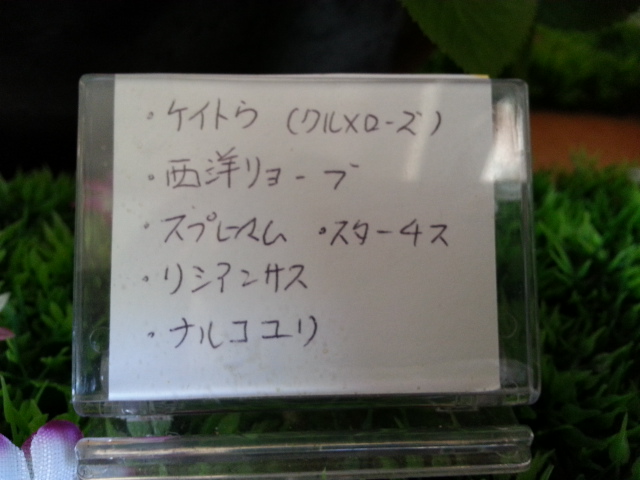 ・ケイトウ （クルメローズ）
・西洋リョーブ
・スプレーマム ・スターチス
・リシアンサス
・ナルコユリ